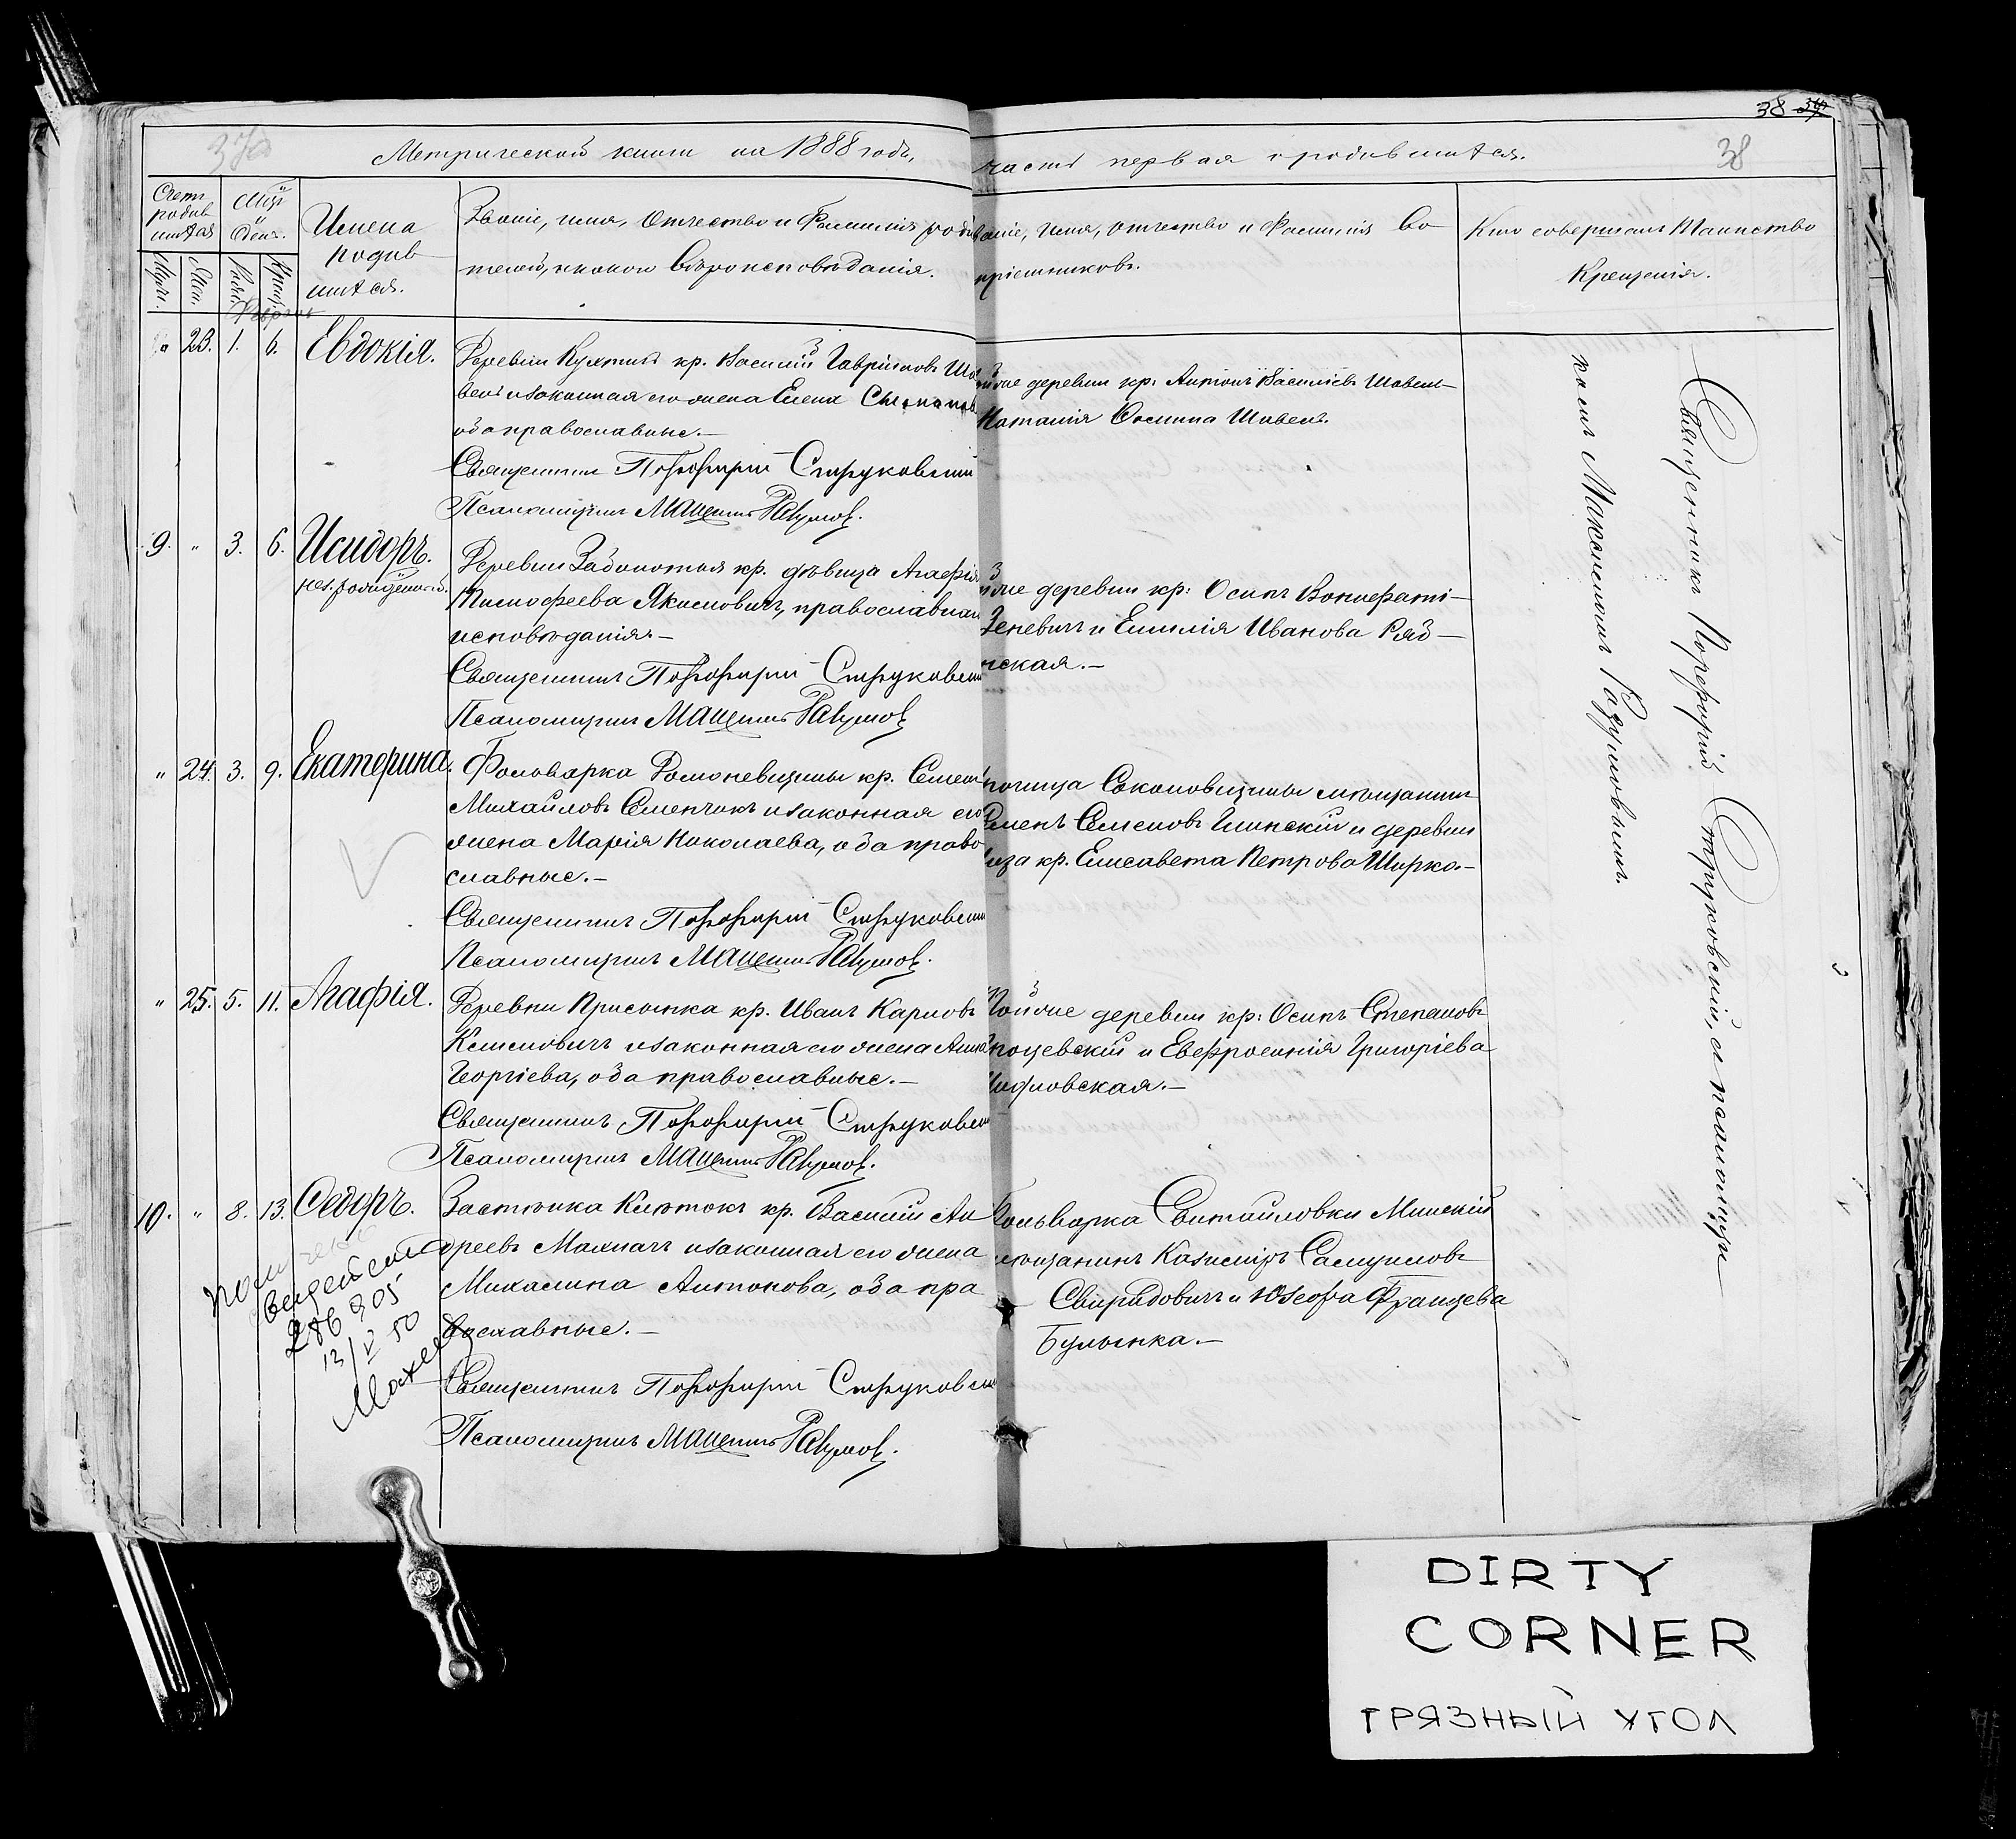 38 39
37об
Метрической книги на 1888 годъ,
часть первая о родившихся.
38
Счетъ родившихся
Мѣс. День.
Имена родившихся.
Званіе, имя, отчество и фамилія родителей, и какого вѣроисповѣданія.
Званіе, имя, отчество и фамилія воспріемниковъ.
Кто совершалъ таинство
Крещенія.
Муж.
Жен.
Рожд.
Крещ.
Февраль
" 23. 1. 6. Евдокія.
Деревни Кухтичъ кр. Василій Гавріиловъ
и законная его жена Елена Степанов
оба православные.—
Священникъ Порфирій Струковскій
Псаломщикъ
той же деревни кр: Антонъ Василіевъ Шавель
Наталія Осипова Шавель.
9. " 3. 6. Исидоръ.
незаконнорожденный.
Деревни Заболотья кр. дѣвица Агафія
Тимофеева Якимовичъ, православнаго
исповѣданія.—
Священникъ Порфирій Струковскій
Псаломщикъ
той же деревни кр: Осипъ Вонифаті—
Зеневичъ и Емилія Иванова Ряб—
нская.—
" 24. 3. 9. Екатерина.
Фольварка Романевщины кр. Семенъ
Михайловъ Семенчокъ и законная его
жена Марія Николаева, оба право
славные.—
Священникъ Порфирій Струковскій
Псаломщикъ
Соколовщины мѣщанинъ
Семенъ Семеновъ Глинскій и деревни
кр. Елисавета Петрова Ширко.—
" 25. 5. 11. Агафія.
Деревни Присынка кр. Иванъ Карповъ
Климовичъ и законная его жена Анна
Георгіева, оба православные.—
Священникъ Порфирій Струковскій
Псаломщикъ
Той же деревни кр: Осипъ Степановъ
и Евфросинія Григоріева
10. " 8. 13. Ѳедоръ.
Застѣнка Клѣтокъ кр. Василій Ан
дреевъ Махначъ и законная его жена
Михалина Антонова, оба пра
вославные.—
Священникъ Порфирій Струковскій
Псаломщикъ
Фольварка Свитайловки Минскій
мѣщанинъ Казиміръ Самуиловъ
Свиридовичъ и Юзефа Францева
Булынка.—
286905
13/V 50
Священникъ Порфирій Струковскій, съ псаломщи
комъ
DIRTY
CORNER
ГРЯЗНЫЙ УГОЛ